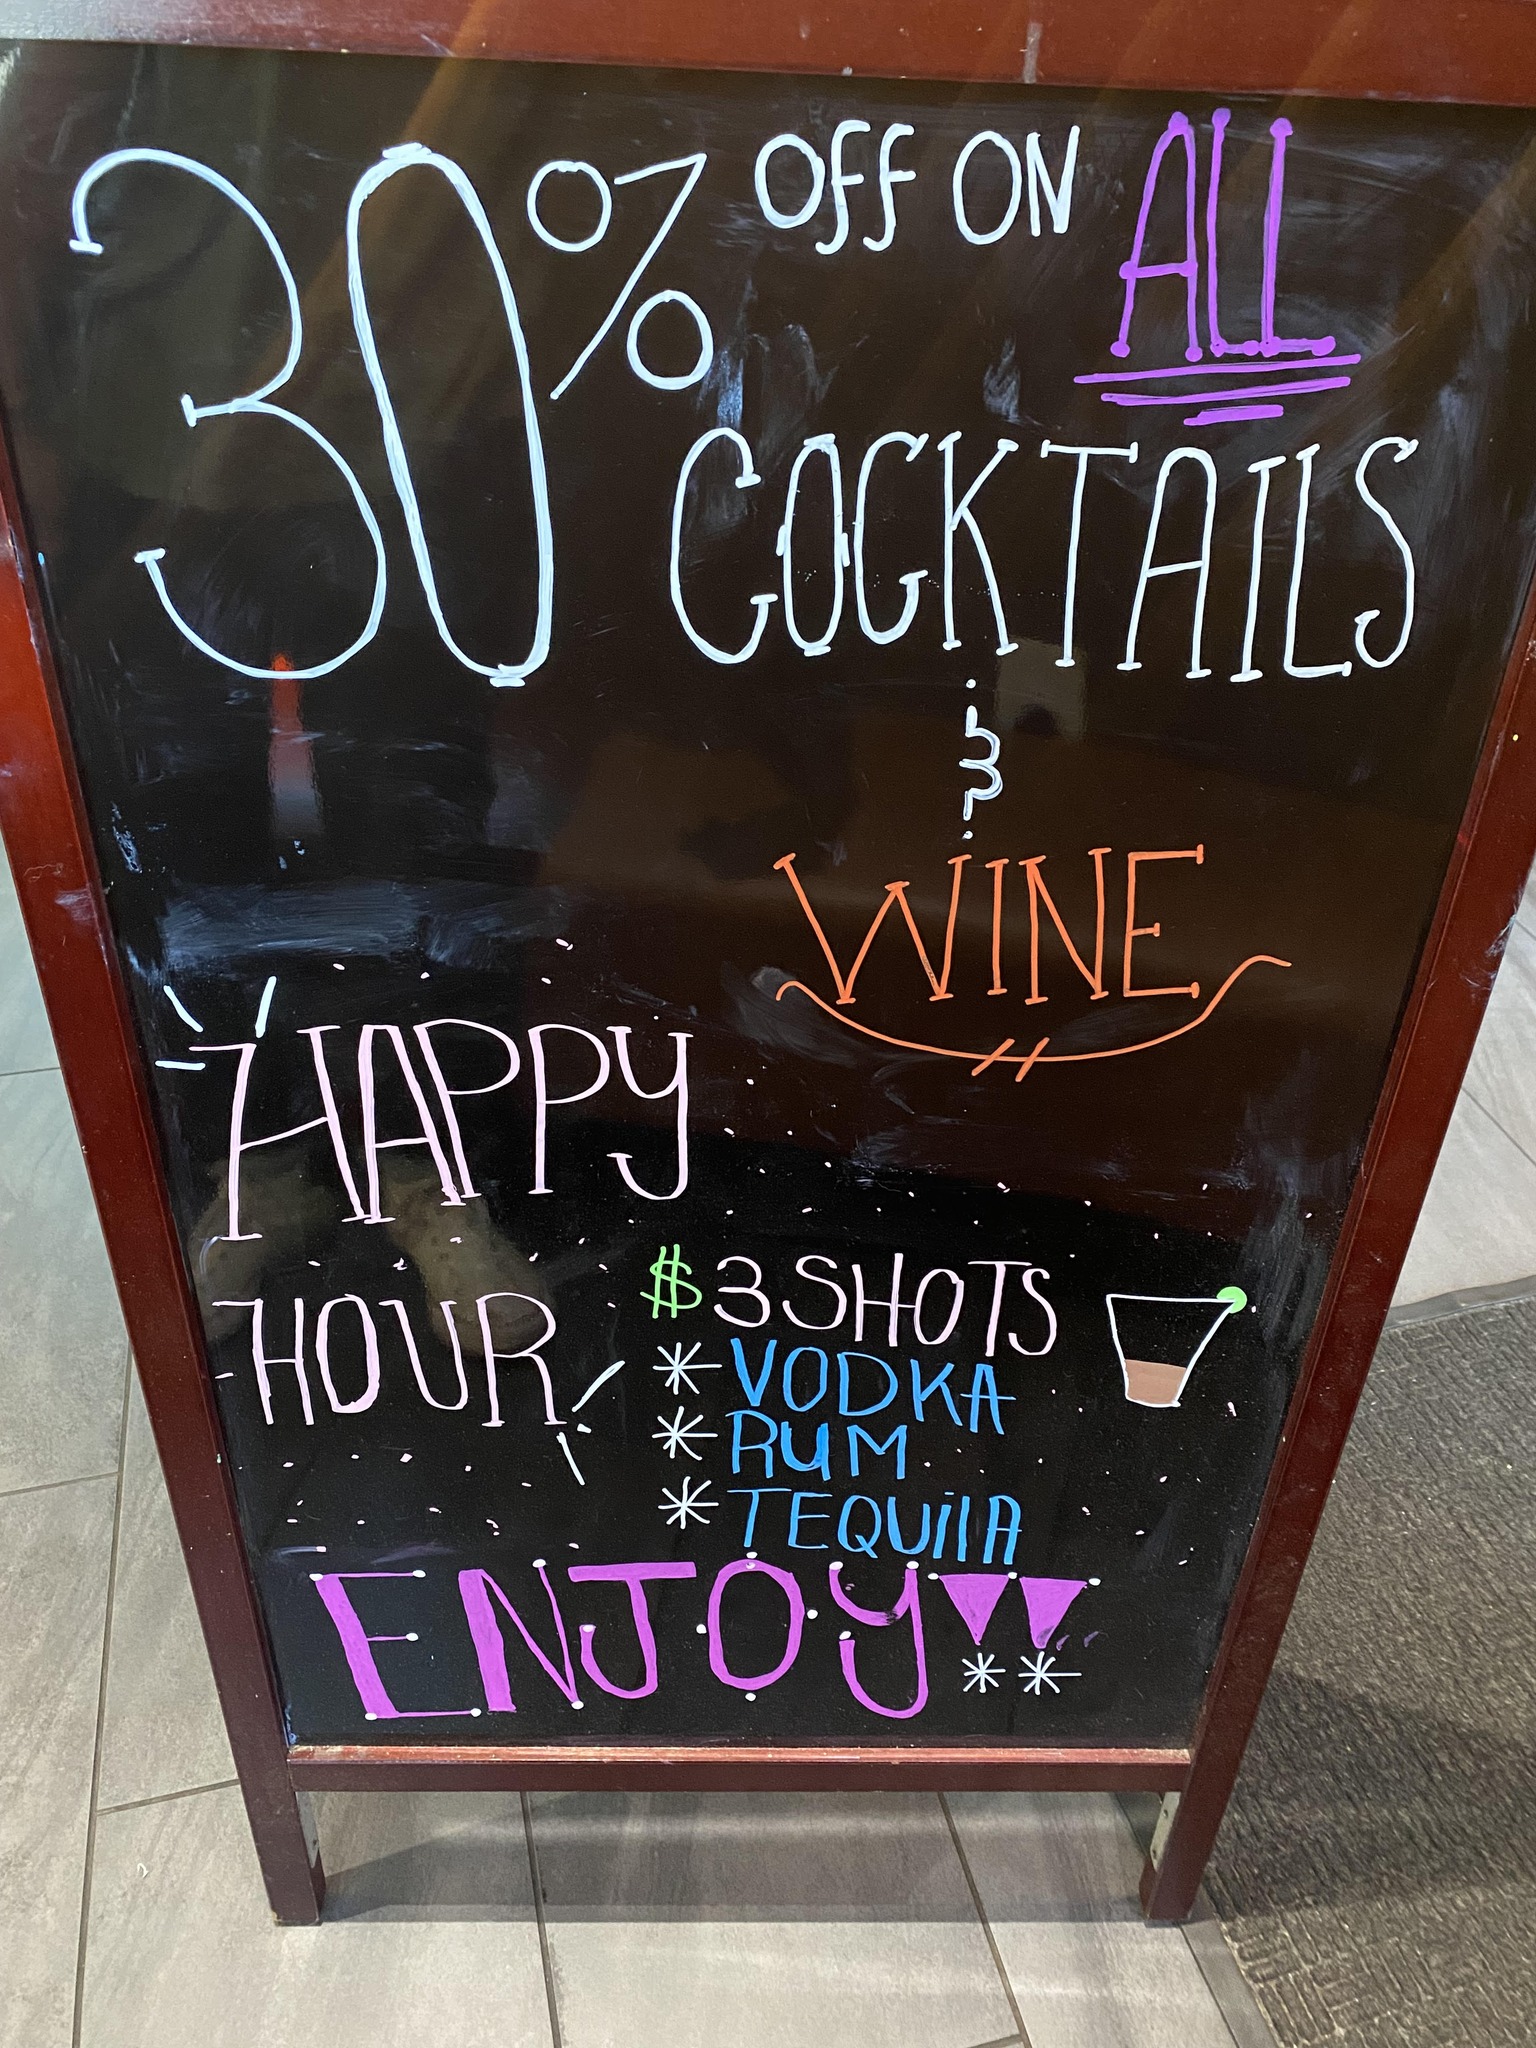 30% OFF ON ALL
COCKTAILS
&
WINE
HAPPY
HOUR
$3 SHOTS
* VODKA
* RUM
* TEQUiLA
ENJOY!!